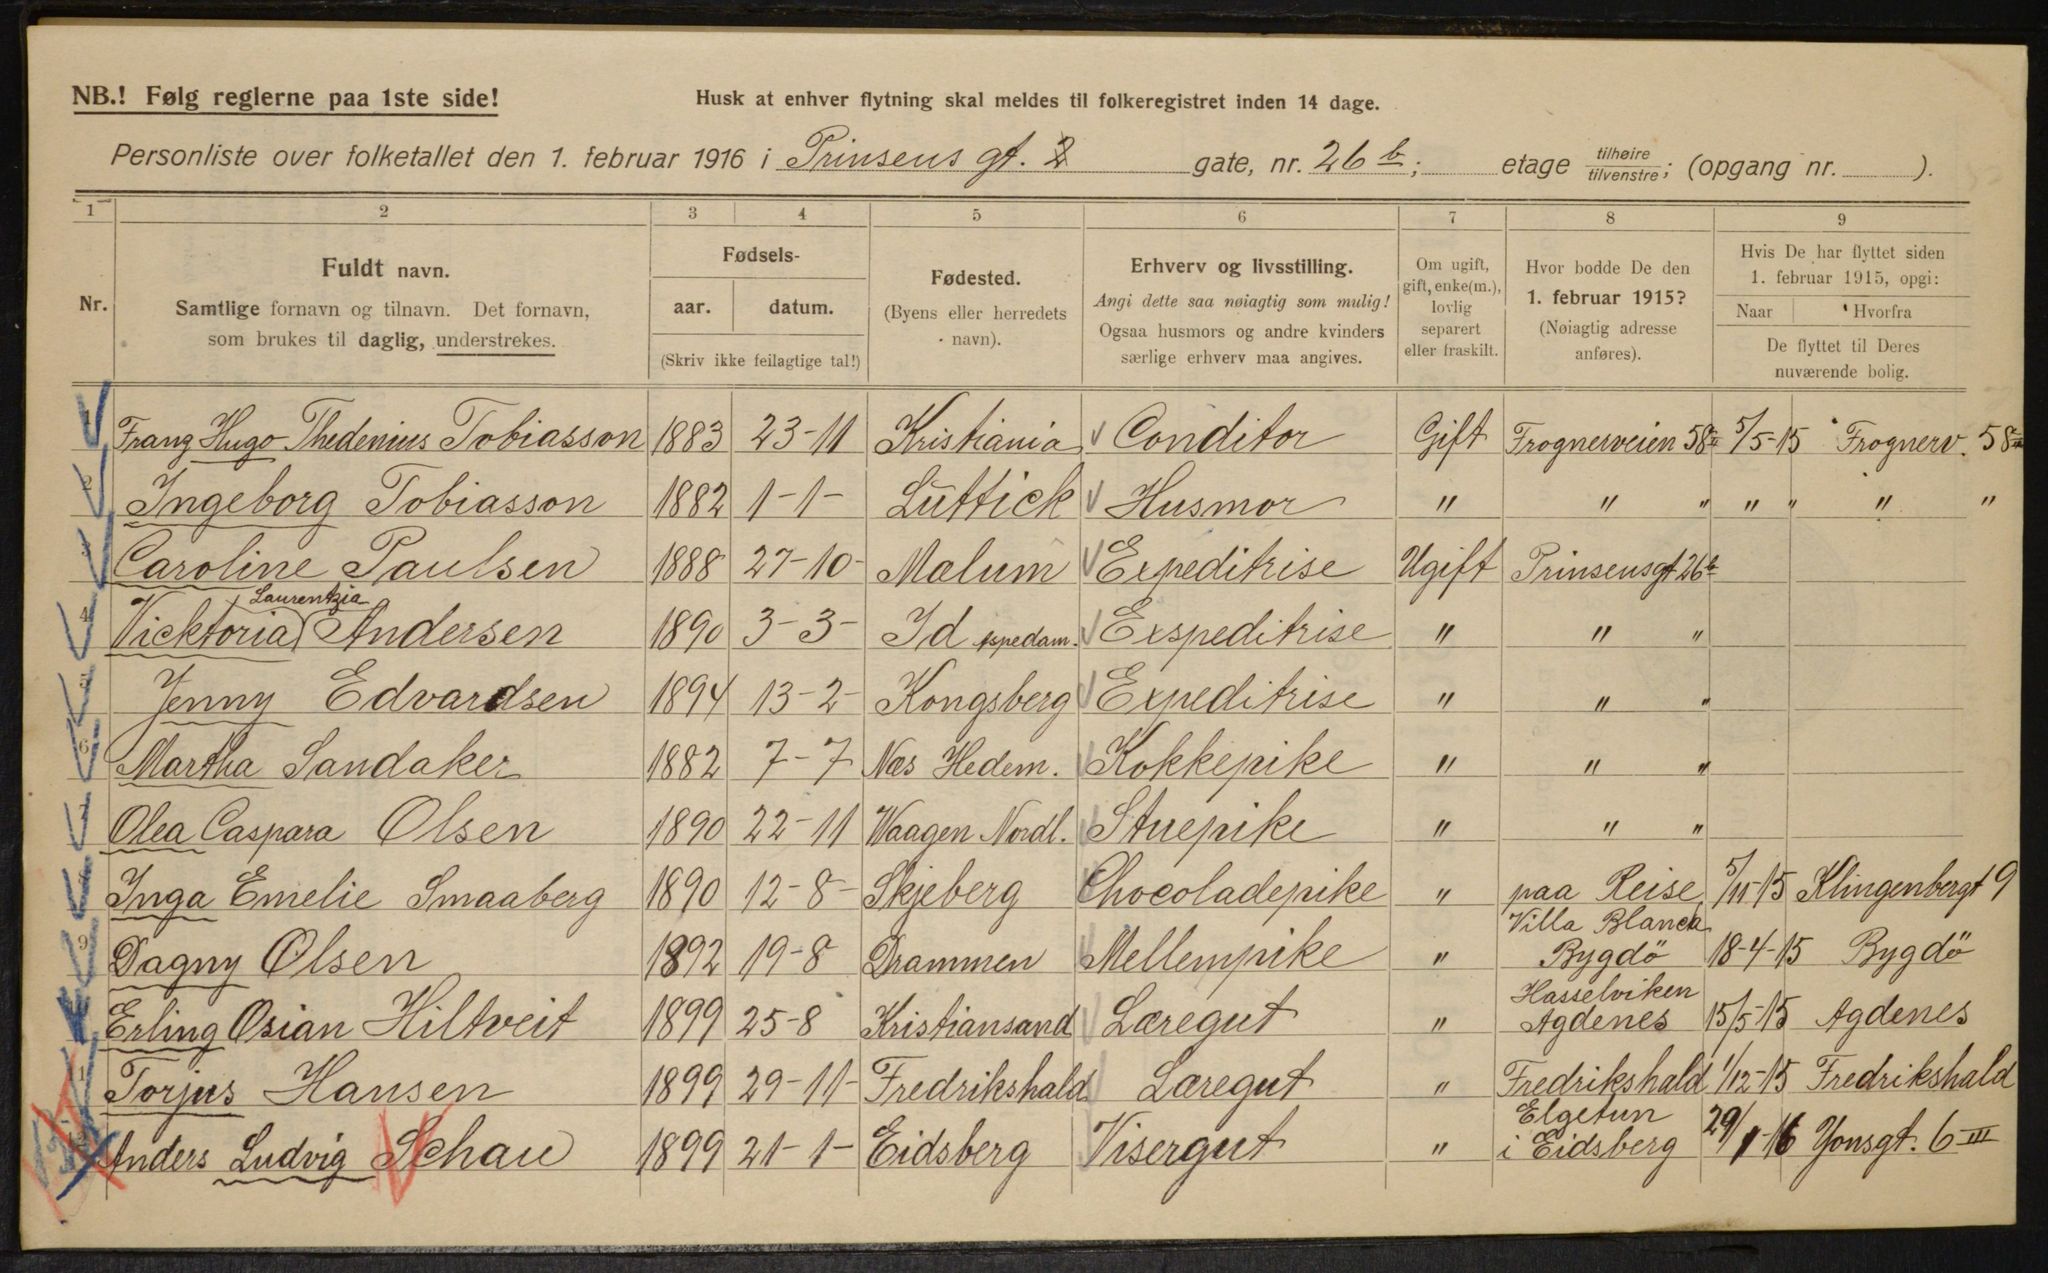 NB.! Følg reglerne paa 1ste side!
Husk at enhver flytning skal meldes til folkeregistret inden 14 dage.
Personliste over folketallet den 1. februar 1916 i Prinsens gt. 2 gate, nr. 26 b; etage tilhøire/tilvenstre; (opgang nr. ).
1 2 3 4 5 6 7 8 9
Nr.
Fuldt navn.
Samtlige fornavn og tilnavn. Det fornavn,
som brukes til daglig, understrekes.
Fødsels-
aar. datum.
(Skriv ikke feilagtige tal!)
Fødested.
(Byens eller herredets
navn).
Erhverv og livsstilling.
Angi dette saa nøiagtig som mulig!
Ogsaa husmors og andre kvinders
særlige erhverv maa angives.
Om ugift,
gift, enke(m.),
lovlig
separert
eller fraskilt.
Hvor bodde De den
1. februar 1915?
(Nøiagtig adresse
anføres).
Hvis De har flyttet siden
1. februar 1915, opgi:
Naar Hvorfra
De flyttet til Deres
nuværende bolig.
1 Franz Hugo Thedenius Tobiasson 1883 23-11 Kristiania Conditor Gift Frognerveien 58 5/5-15 Frognerv. 58
2 Ingeborg Tobiasson 1882 1-1- Lüttick Husmor " " " " " " "
3 Caroline Paulsen 1888 27-10- Mælum Expeditrise Ugift Prinsensgt 26b
Laurentzia
4 Vicktoria Andersen 1890 3-3- Id Exspeditrise " " "
5 Jenny Edvardsen 1894 13-2- Kongsberg Expeditrise " " "
6 Martha Sandaker 1882 7-7 Næs Hedem. Kokkepike " " "
7 Olea Caspara Olsen 1890 22-11 Waagen Nordl. Stuepike " " "
8 Inga Emelie Smaaberg 1890 12-8- Skjeberg Chocoladepike " paa Reise 5/11-15 Klingenbergt 9
Villa Blanca
9 Dagny Olsen 1892 19-8 Drammen Mellempike " Bygdö 18-4-15 Bygdö
Hasselviken
Erling Osian Hiltveit 1899 25-8 Kristiansand Læregut " Agdenes 15/5-15 Agdenes
11 Torjus Hansen 1899 29-11- Fredrikshald Læregut " Fredrikshald 1/12-15 Fredrikshald
Elgetun
12 Anders Ludvig Schau 1899 21-1- Eidsberg Visergut " i Eidsberg 29/1-16 Yonsgt. 6 III